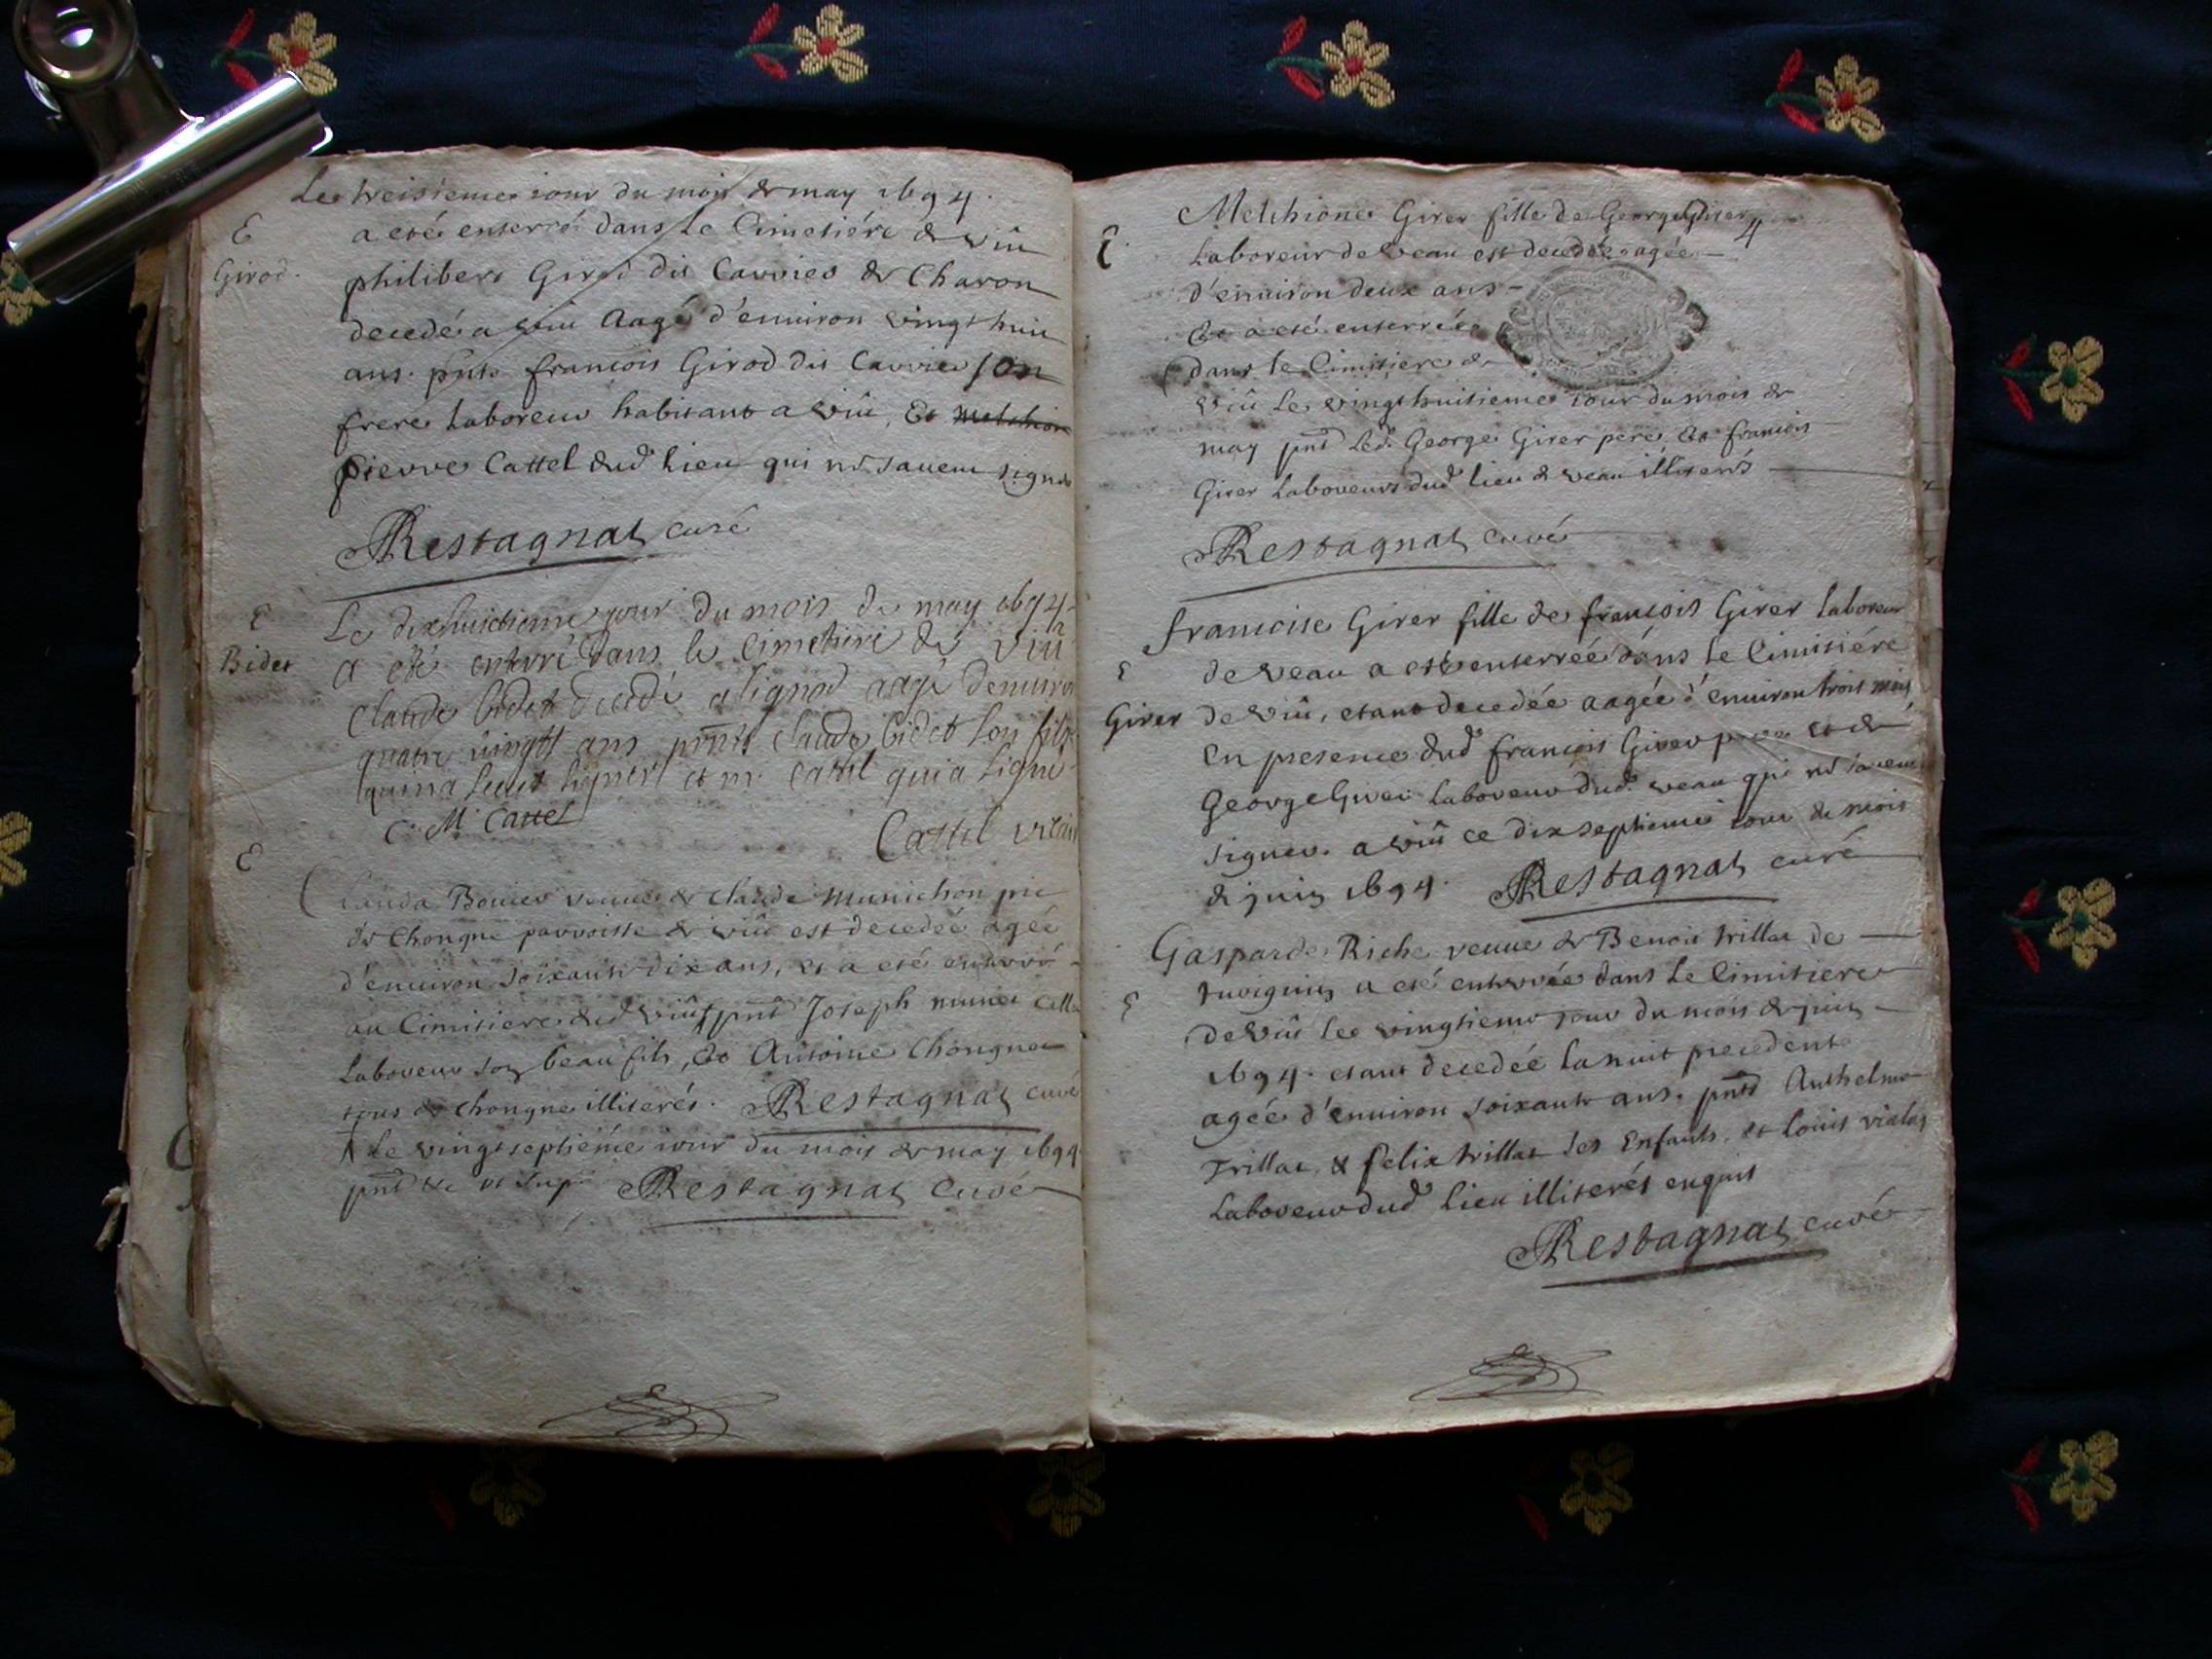 Le treisieme iour du mois de may 1694.
E
a eté enterré dans Le Cimetiére de viû
Girod.
philibert Girod dit Carrier de Charon
decedé a viu Aagé d'enuiron vingt huit
ans. pnts françois Girod dit Carrier son
frere Laboreur habitant a viû, Et Melchior
pierre Cattel dud lieu qui ne sauent signer
Restagnat curé
E
Le dixhuictieme jour du mois de may 1694
Bidet
a été enterré dans le cimetiere de viû
Claude bidet decedé a lignod aagé denuiron
quatre vingts ans pnts claude bidet son fils
qui na sceut signer et m. cattel qui a signé
C. M Cattel
Cattel vicaire
E
Claude veuue de Claude Munichon
de Chongne parroisse de viû est decedée agée
d'enuiron soixante dix ans, et a eté enterré
au Cimitiere dud viû pnt Joseph
Laboreur son beau fils, Et Antoine Chongne
tous de Chongne illiterés. Restagnat curé
Le vingt septiéme iour du mois de may 1694
pnt &c ut sup. Restagnat Curé
Melchione Girer fille de George Girer
4
E.
Laboreur de veau est decedée agée
d'enuiron deux ans
Et a eté enterrée
dans le Cimitiere de
viû Le vingt huitieme iour du mois de
may pnt Led. George Girer pere, Et francois
Girer Laboreurs dud lieu de veau illiterés
Restagnat curé
francoise Girer fille de françois Girer laboreur
E
de veau a esté enterrée dans le Cimitiére
Girer
de viû, etant decedée aagée d'enuiron trois mois
En presence dud francois Girer pere et de
George Girer Laboreur dud. veau qui ne sauent
signer. a viû ce dix septieme iour du mois
de juin 1694. Restagnat curé
Gasparde Riche veuue de Benoit trillat de
a eté enterrée dans Le Cimitiere
E
de viû le vingtieme jour du mois de juin
1694. etant decedée la nuit precedente
agée d'enuiron soixante ans. pnts Anthelme
Trillat, & felix trillat ses Enfants, et Louis
Laboreur dud lieu illiterés enquis
Restagnat curé